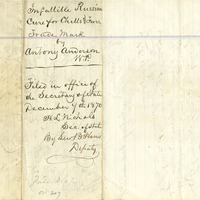 Infallible Russian
Cure for Chills & Fever
Trade Mark
by
Antony Anderson
Filed in office of
the Secretary of State
December 9th 1870
H L Nichols
Sec. of State
By
Deputy